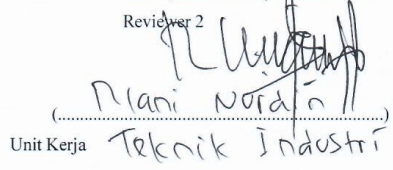 Reviewer 2
Nordin
(....................................................................................)
Unit Kerja Teknik Industri